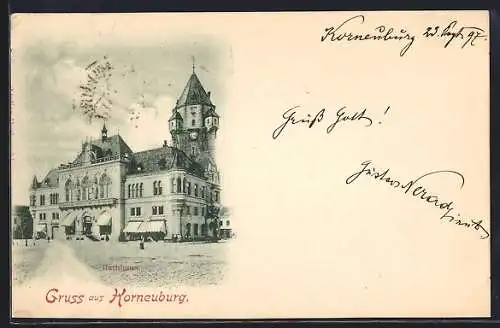 Korneuburg 23. Sept 97.
Gruß Gott!
Gustav
Rathhaus.
Gruss aus Korneuburg.